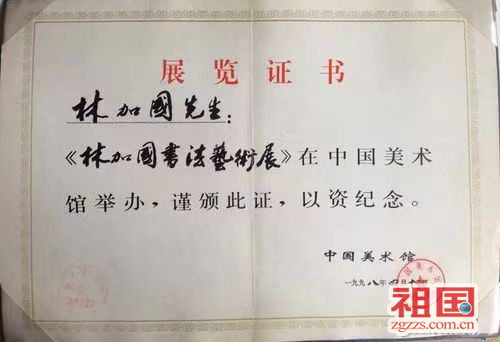 展览证书
林加國先生：
《林加國書法藝術展》在中国美术
馆举办，谨颁此证，以资纪念。
中国美术馆
一九九八年四月十
祖国
zgzzs.com.cn